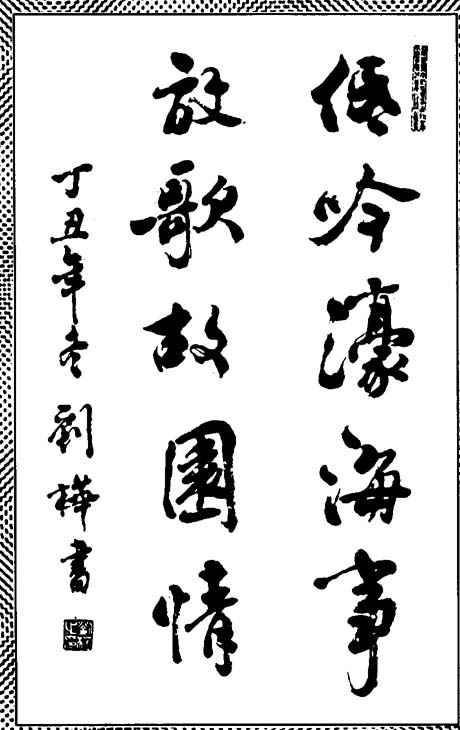 低吟濠海事
放歌故園情
丁丑年冬 劉樺書